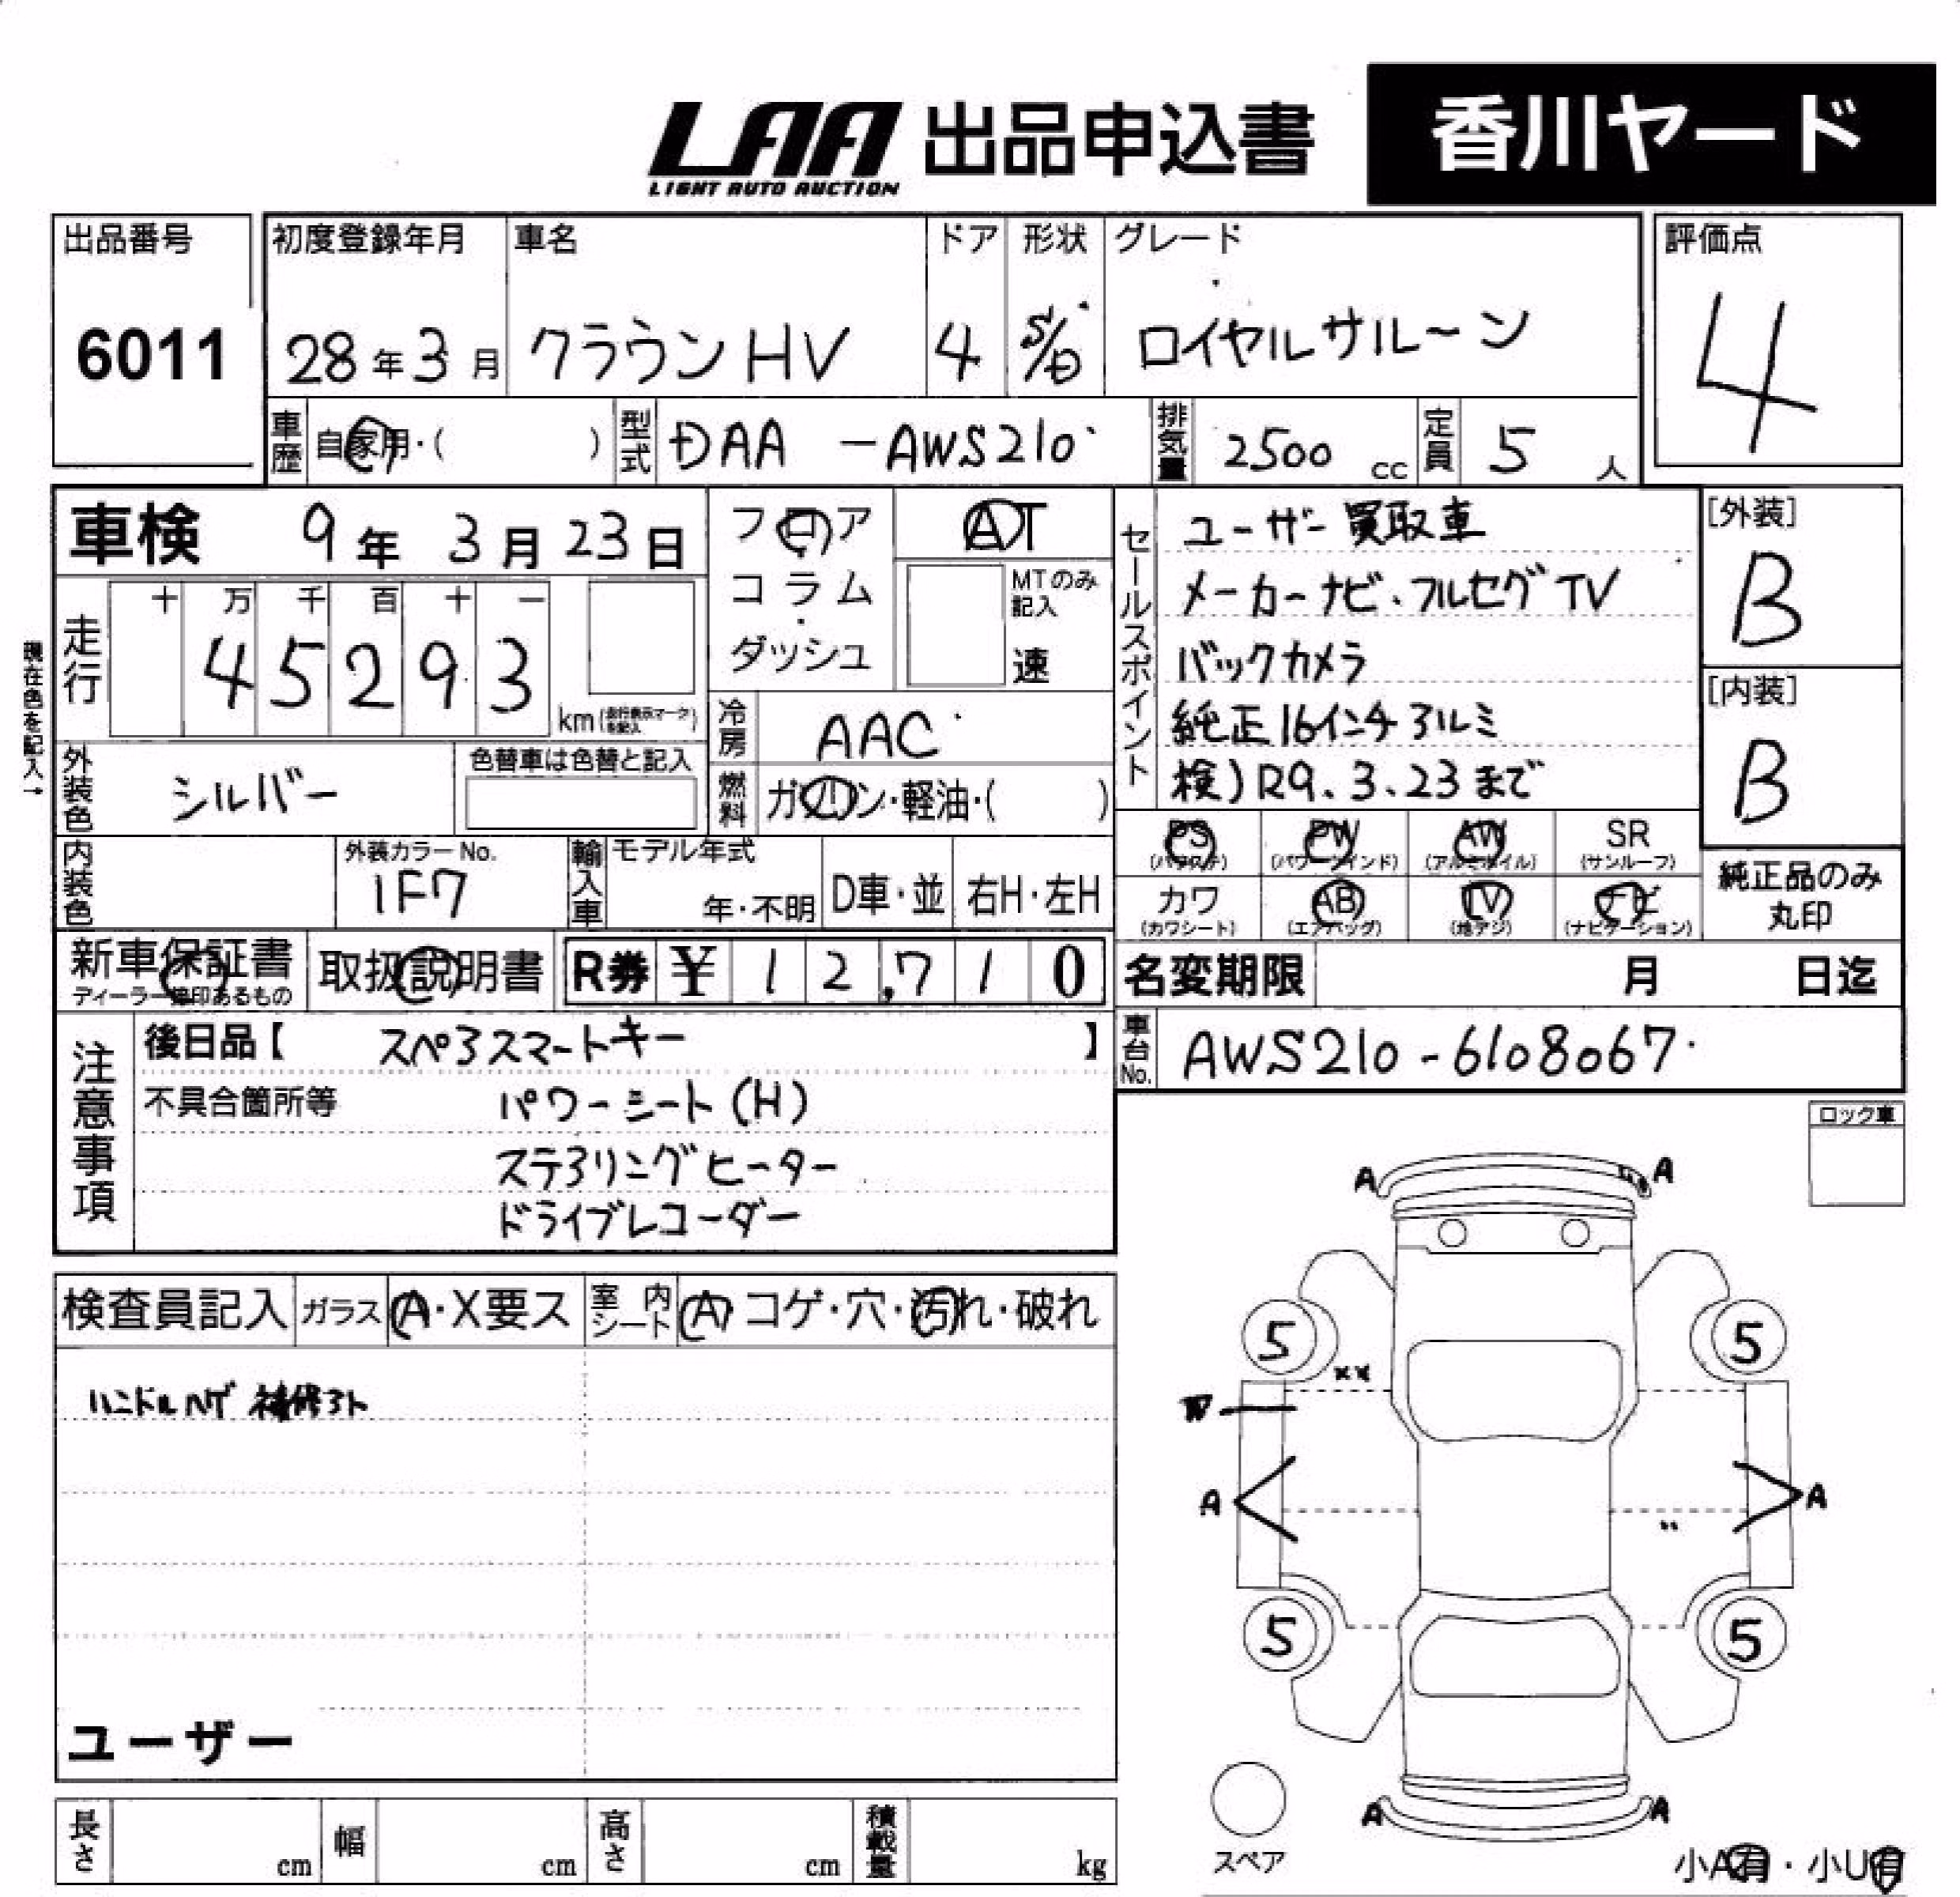 LAA 出品申込書 香川ヤード
LIGHT AUTO AUCTION
出品番号 6011
初度登録年月 28年3月
車名 クラウンHV
ドア 4
形状 S/D
グレード ロイヤルサルーン
評価点 4
車歴 自家用・( )
型式 DAA-AWS210
排気量 2500 cc
定員 5 人
車検 9年3月23日
フロア
コラム
ダッシュ
AT
MTのみ記入
速
セールスポイント
ユーザー買取車
メーカーナビ、フルセグTV
バックカメラ
純正16インチアルミ
検)R9.3.23まで
[外装] B
[内装] B
現在色を記入→
走行 十 万 千 百 十 一
45293 km (走行表示マークを記入)
冷房 AAC
燃料 ガソリン・軽油・( )
外装色 シルバー
色替車は色替と記入
内装色
外装カラーNo. 1F7
輸入車 モデル年式 年・不明 D車・並 右H・左H
PS (パワステ) PW (パワーウインド) AW (アルミホイル) SR (サンルーフ)
カワ (カワシート) AB (エアバッグ) TV (地デジ) ナビ (ナビゲーション)
純正品のみ丸印
新車保証書 取扱説明書 R券 ¥12,710
名変期限 月 日迄
車台No. AWS210-6108067
注意事項
後日品【 スペアスマートキー 】
不具合箇所等 パワーシート(H)
ステアリングヒーター
ドライブレコーダー
ロック車
検査員記入 ガラス A・X要ス 室内シート A・コゲ・穴・汚れ・破れ
ハンドルハゲ 補修アト
ユーザー
A A
5 5
XX
W
A A
5 5
A A
スペア
小A有・小U有
長さ cm 幅 cm 高さ cm 積載量 kg